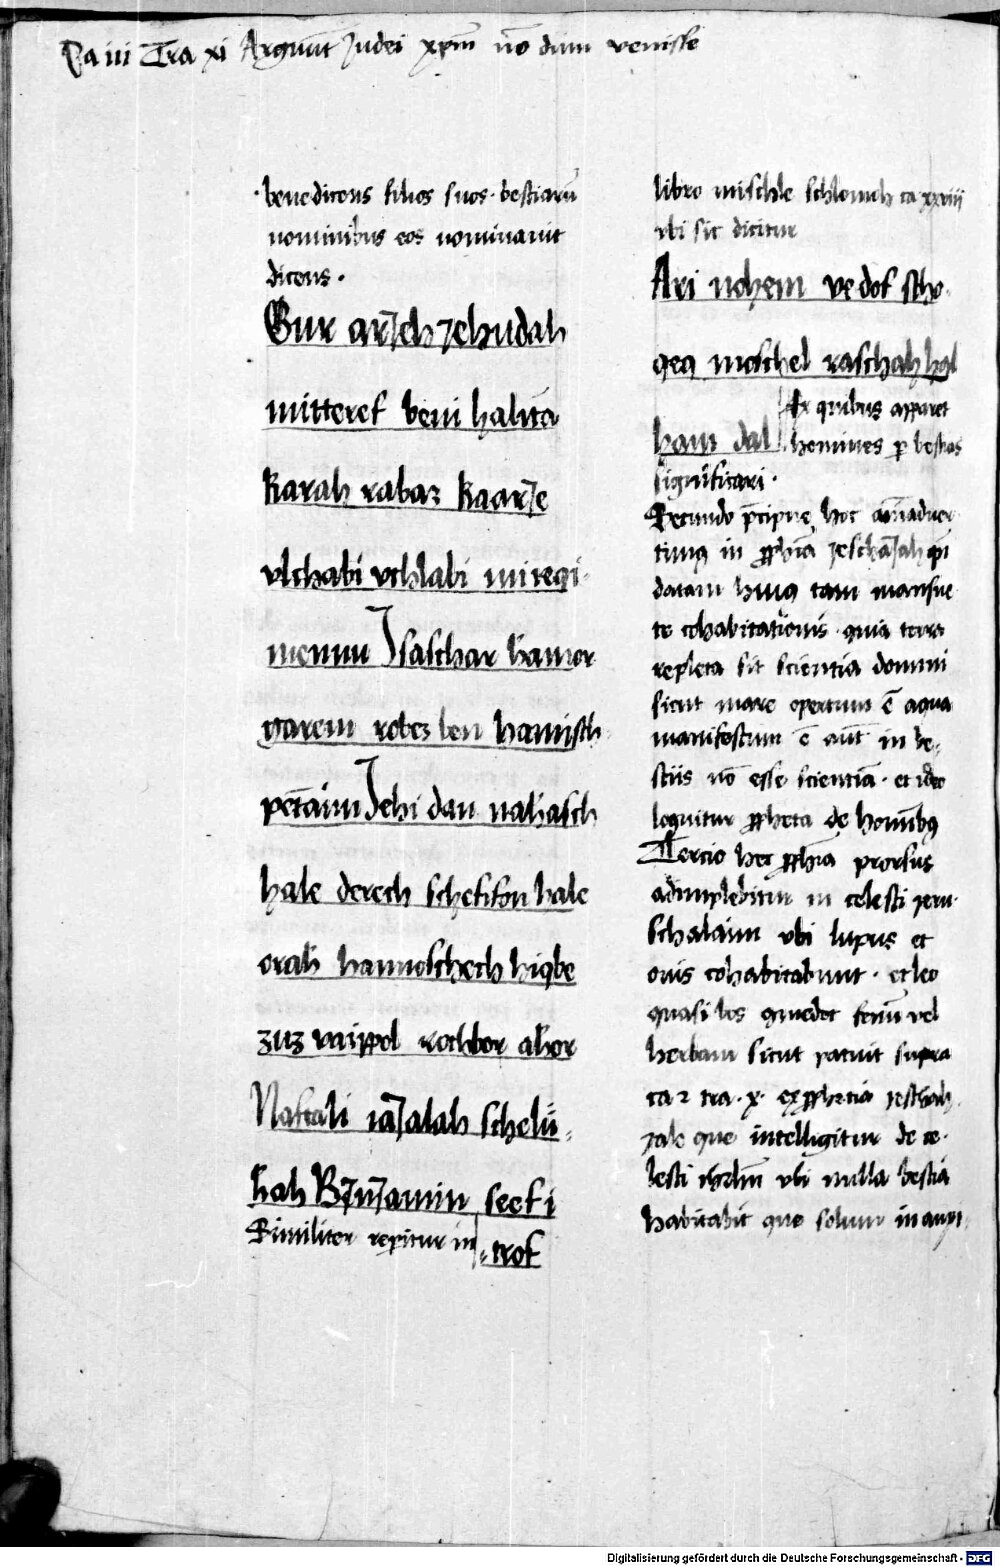 Pa iii Tra xi Arguūt Judei xp̄m nō dum venisse
benedicens filios suos bestiarū
nominibus eos nominavit
dicens.
Gur arjeh jehudah
mitteref beni halita
karah rabaz kaarje
ulchabi uchlabi mi ieqi
mennu Jsaschar hamor
garem robez ben hamisch
petaim Jehi dan nahasch
hale derech schefifon hale
orah hannoschech hiqbe
zuz vaippol rochbor ahor
Naftali iajalah schelu
hah Binjamin seef i
Similiter repitur in trof
libro mischle schlomoh ca xxviij
ubi sic dicitur
Ari nohem ve dof scho
qeq moschel raschah hal
ham dal Ex quibus apparet
homines p bestias
significari.
Secundo p̄cipue hoc aīaduer
timq in ꝓphīa jeschajah qm
datam huiq tam mansue
te cohabitationis quia terra
repleta sit scientia domini
sicut mare opertum ē aqua
manifestum ē aūt in be
stiis nō esse scientiā et ideo
loquitur ꝓpheta de homībq
Tercio hec ꝓphīa prorsus
adimplebitur in celesti jeru
schalaim ubi lupus et
ovis cohabitabunt et leo
quasi bos comedet fenū vel
herbam sicut patuit supra
ca 2 tra x ex ꝓphetia jeschah
jale que intelligitur de ce
lesti ihrlm ubi nulla bestia
habitabit que solum in